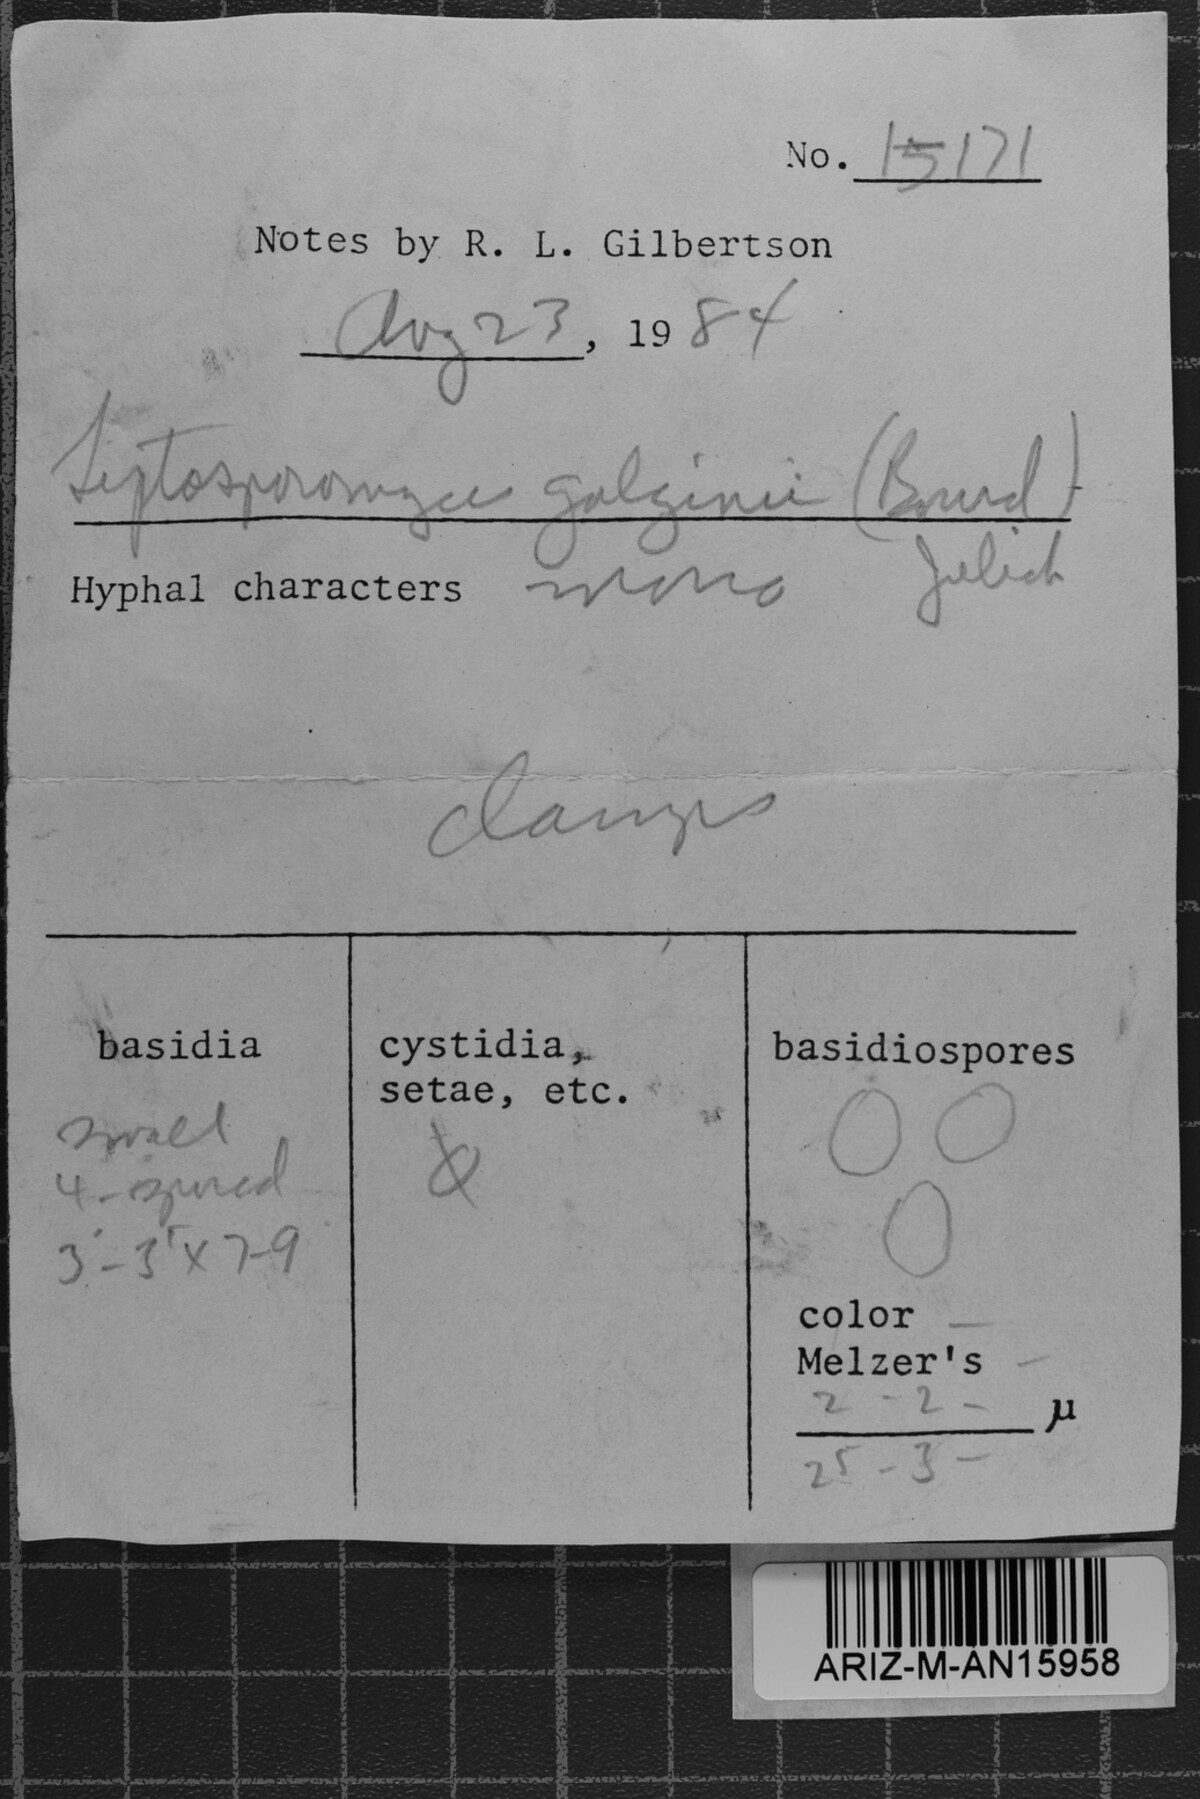 No. 15171
Notes by R. L. Gilbertson
Aug 23, 1984
Leptosporomyces galzinii (Bourd)
Jülich
Hyphal characters mono
clamps
basidia
small
4-spored
3-3⁵ x 7-9
cystidia,
setae, etc.
basidiospores
color —
Melzer's -
2 - 2 - µ
2⁵ - 3 -
ARIZ-M-AN15958